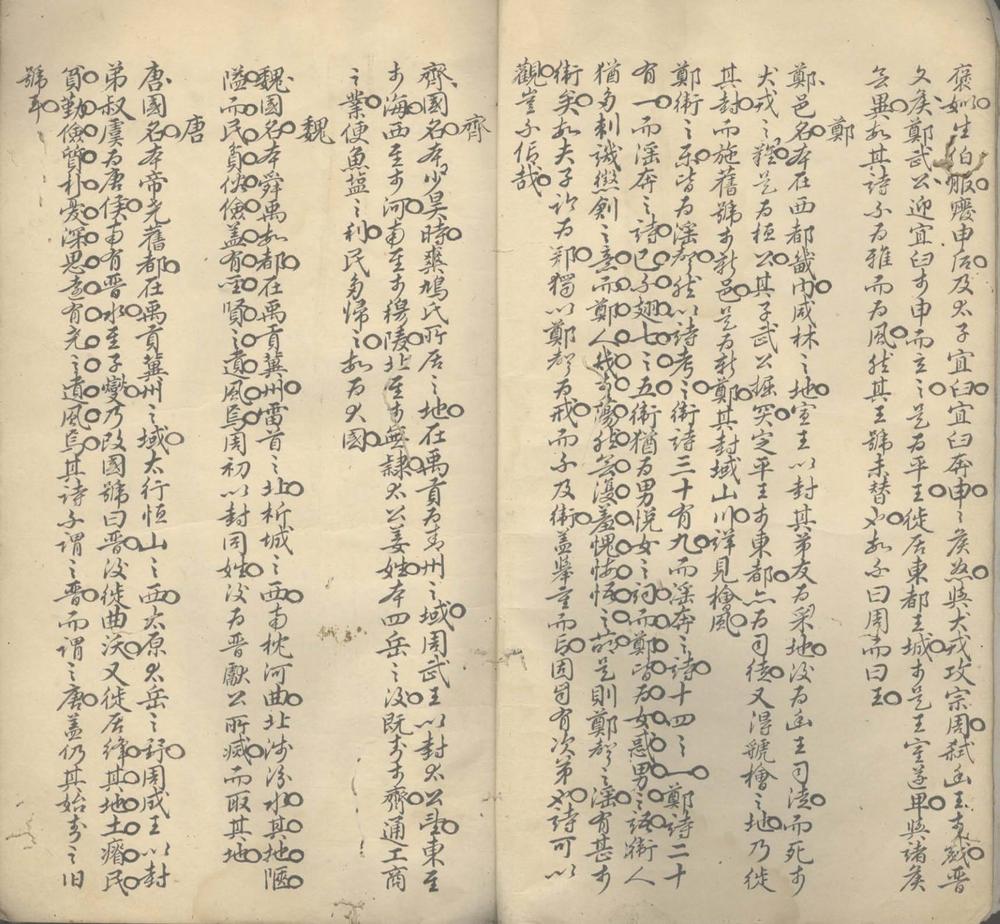 褒姒生伯服廢申后及太子宜臼宜臼奔申申侯怒與犬戎攻宗周弑幽王于戲晉
文侯鄭武公迎宜臼于申而立之是為平王徙居東都王城於是王室遂卑與諸侯
無異故其詩不為雅而為風然其王號未替也故不曰周而曰王
鄭
鄭邑名本在西都畿內咸林之地宣王以封其弟友為采地後為幽王司徒而死於
犬戎之難是為桓公其子武公掘突定平王於東都亦為司徒又得虢檜之地乃徙
其封而施舊號於新邑是為新鄭其封域山川詳見檜風
鄭衛之樂皆為淫聲然以詩考之衛詩三十有九而淫奔之詩十四之一鄭詩二十
有一而淫奔之詩已不翅七之五衛猶為男悅女之詞而鄭皆為女惑男之語衛人
猶多刺譏懲創之意而鄭人幾於蕩然無復羞愧悔悟之萌是則鄭聲之淫有甚於
衛矣故夫子論為邦獨以鄭聲為戒而不及衛盖舉重而言固自有次第也詩可以
觀豈不信哉
齊
齊國名本少昊時爽鳩氏所居之地在禹貢為青州之域周武王以封太公望東至
于海西至于河南至于穆陵北至于無隸太公姜姓本四岳之後既封於齊通工商
之業便魚盐之利民多歸之故為大國
魏
魏國名本舜禹故都在禹貢冀州雷首之北析城之西南枕河曲北涉汾水其地陿
隘而民貧俗儉盖有聖賢之遺風焉周初以封同姓後為晉獻公所滅而取其地
唐
唐國名本帝堯舊都在禹貢冀州之域太行恒山之西太原太岳之野周成王以封
弟叔虞為唐侯南有晉水至子燮乃改國號曰晉後徙曲沃又徙居絳其地土瘠民
貧勤儉質朴憂深思遠有堯之遺風焉其詩不謂之晉而謂之唐盖仍其始封之旧
號耳